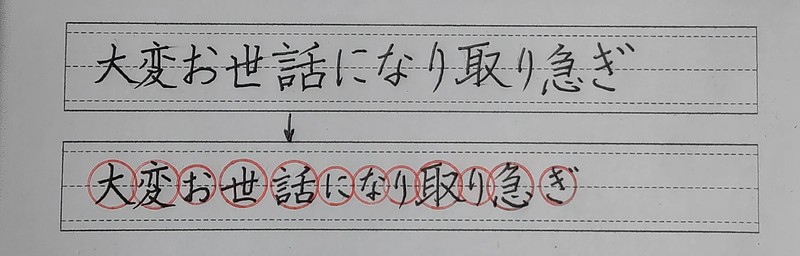 大変お世話になり取り急ぎ
大変お世話になり取り急ぎ